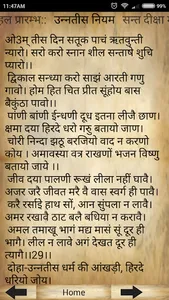 11:47AM
हल प्रारम्भ:: उन्नतीस नियम सन्त दीक्षा
ओ3म् तीस दिन सूतक पांच ऋतवन्ती
न्यारो। सरो करो स्नान शील सन्ताषे शुचि
प्यारो।।
द्विकाल सन्ध्या करो सांझं आरती गुणु
गावो। होम हित चित प्रीत सूंहोय बास
बैकुंठा पावो।।
पांणी बांणी ईन्धणी दूध इतना लीजै छाण।
क्षमा दया हिरदे धरो गुरु बतायो जाण।।
चोरी निन्दा झठू बरजियो वाद न करणो
कोय। अमावस्या वत्र राखणों भजन विष्णु
बतायो जोय।।
जीव दया पालणी रूखं लीला नहीं घावै।
अजर जरै जीवत मरै वै वास स्वर्ग ही पावै।
करै रसाई हाथ सों, आन सुंपला न लावै।
अमर रखावै ठाट बले बधिया न करावै।
अमल तमाखू भागं मद्य मासं सूं दूर ही
भागे। लील न लावे अगं देखत दूर ही
त्यागे।।29।।
दोहा-उन्नतीस धर्म की आंखड़ी, हिरदे
धरियो जोय।
Home